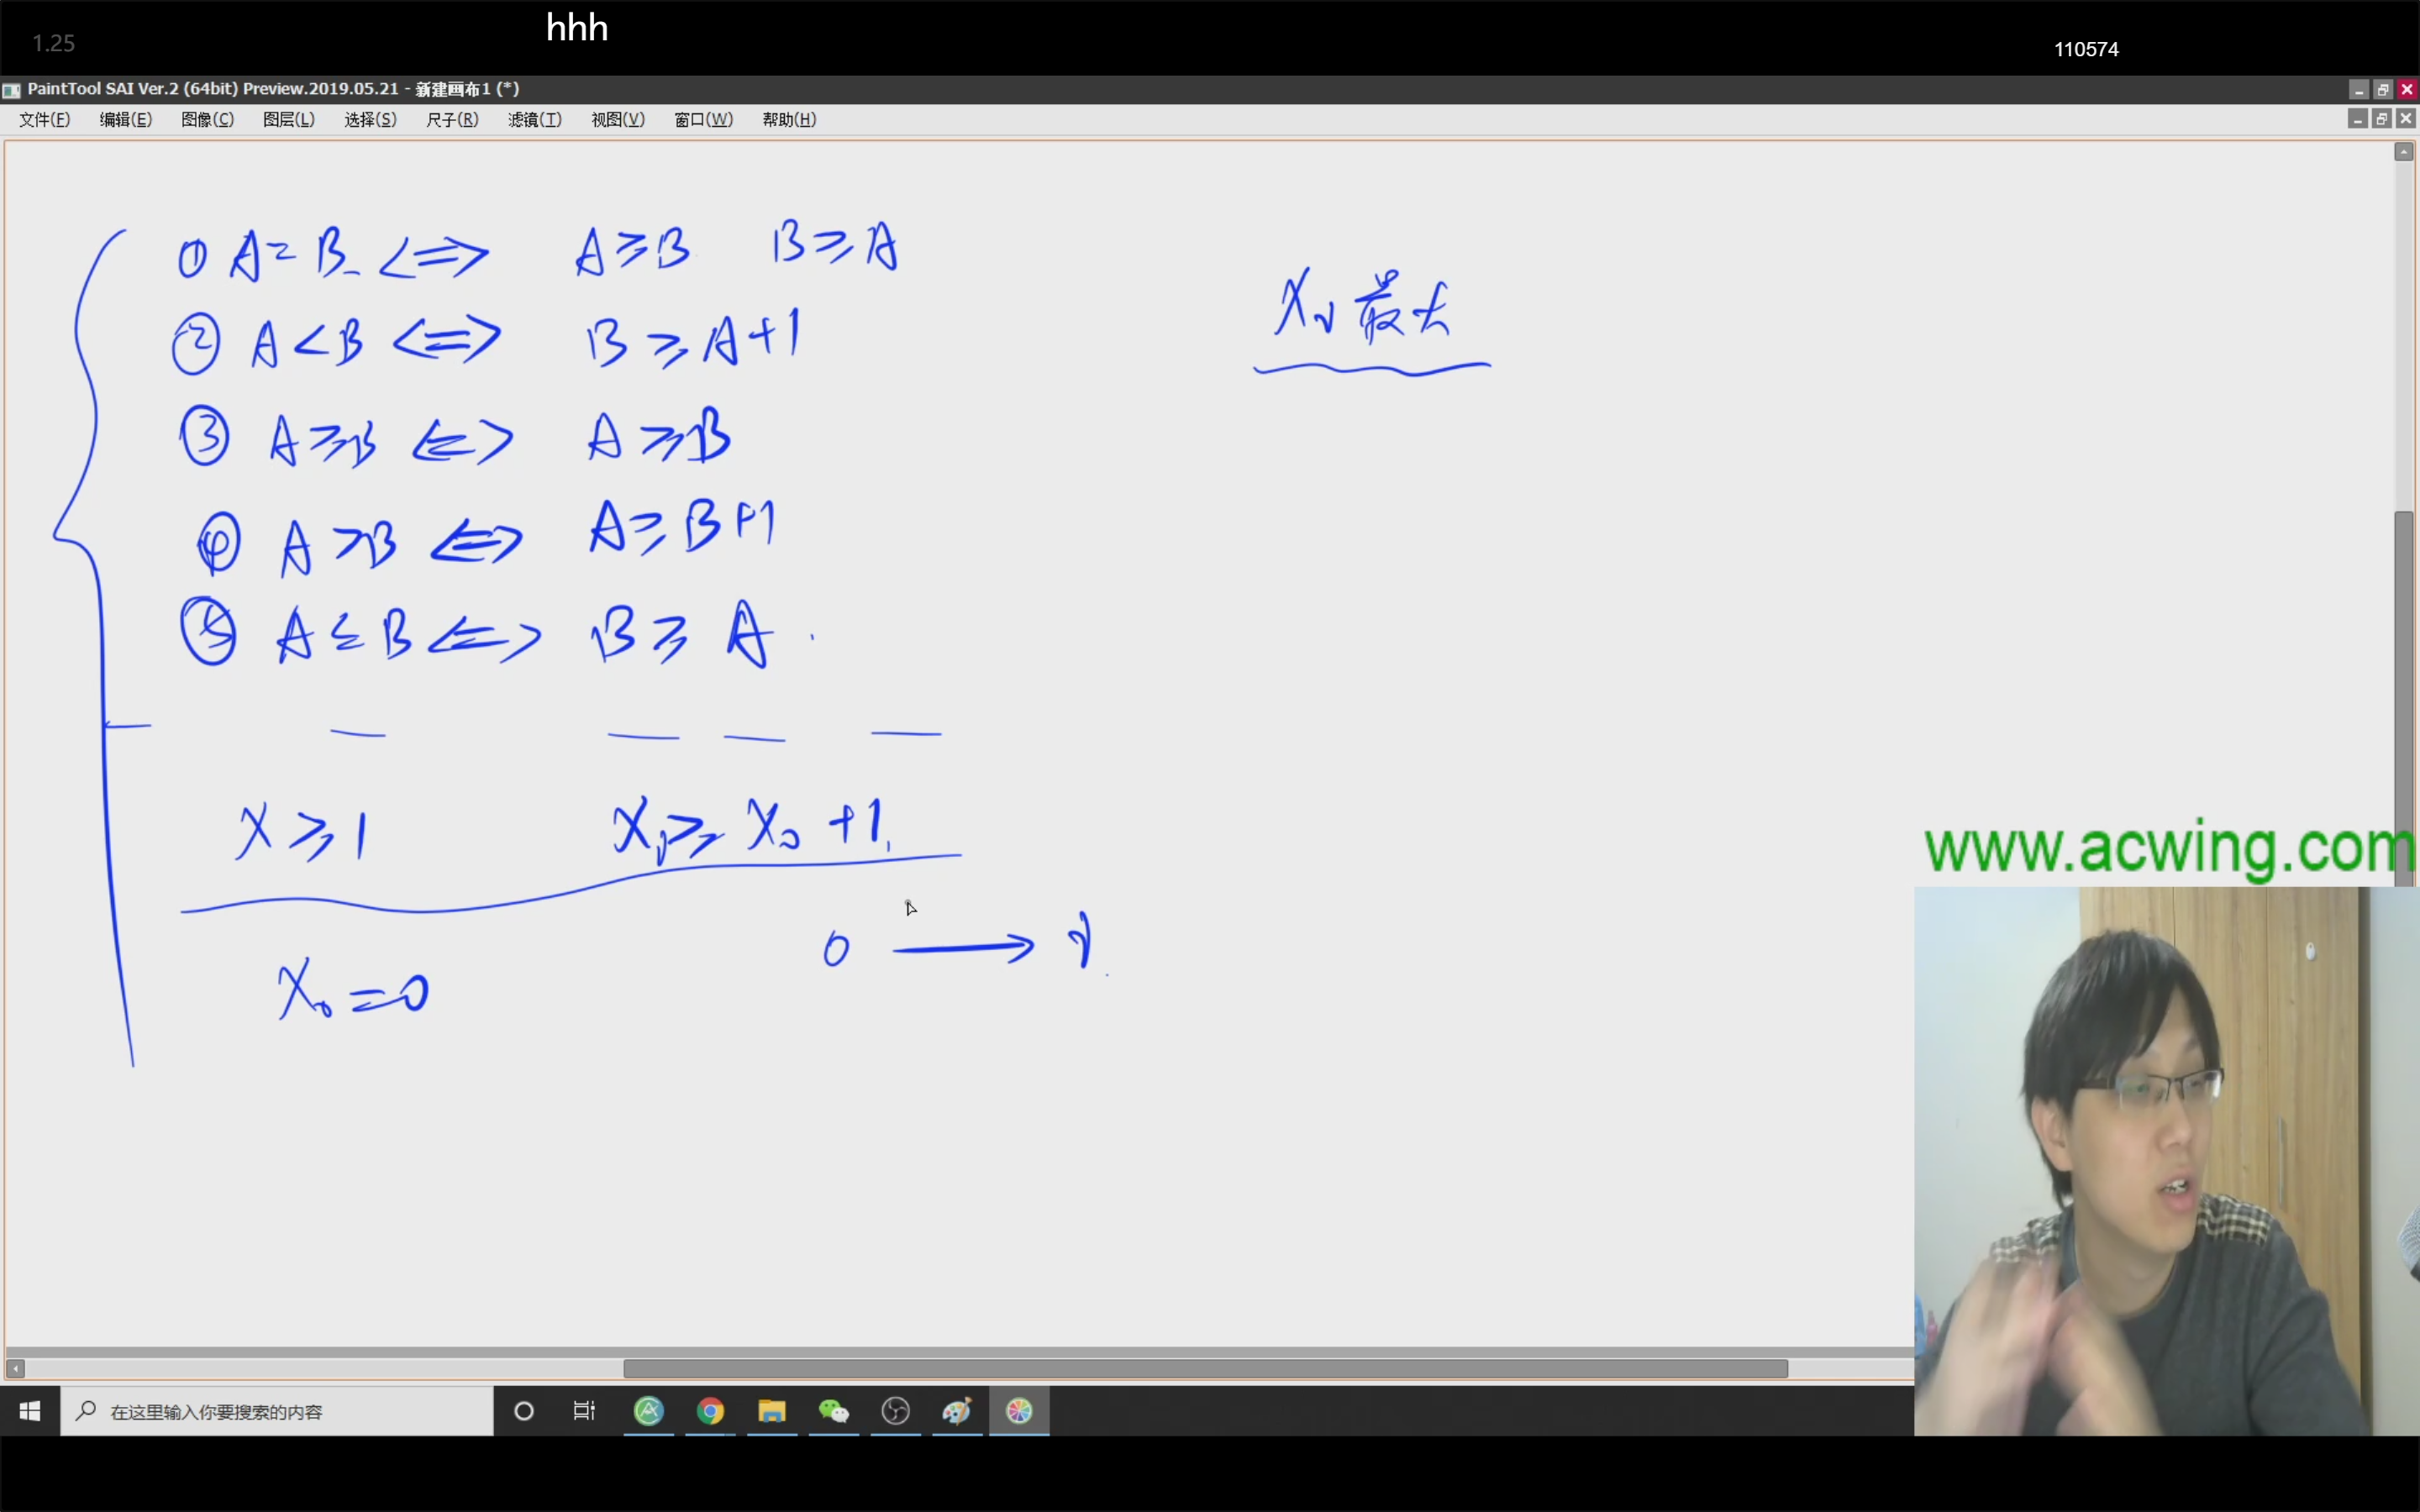 hhh
1.25
110574
PaintTool SAI Ver.2 (64bit) Preview.2019.05.21 - 新建画布1 (*)
文件(F) 编辑(E) 图像(C) 图层(L) 选择(S) 尺子(R) 滤镜(T) 视图(V) 窗口(W) 帮助(H)
① A = B <=> A ≥ B B ≥ A
② A < B <=> B ≥ A+1
③ A ≥ B <=> A ≥ B
④ A > B <=> A ≥ B+1
⑤ A ≤ B <=> B ≥ A
Xi 最大
X ≥ 1 Xi ≥ X0 + 1
0 → i
X0 = 0
www.acwing.com
在这里输入你要搜索的内容